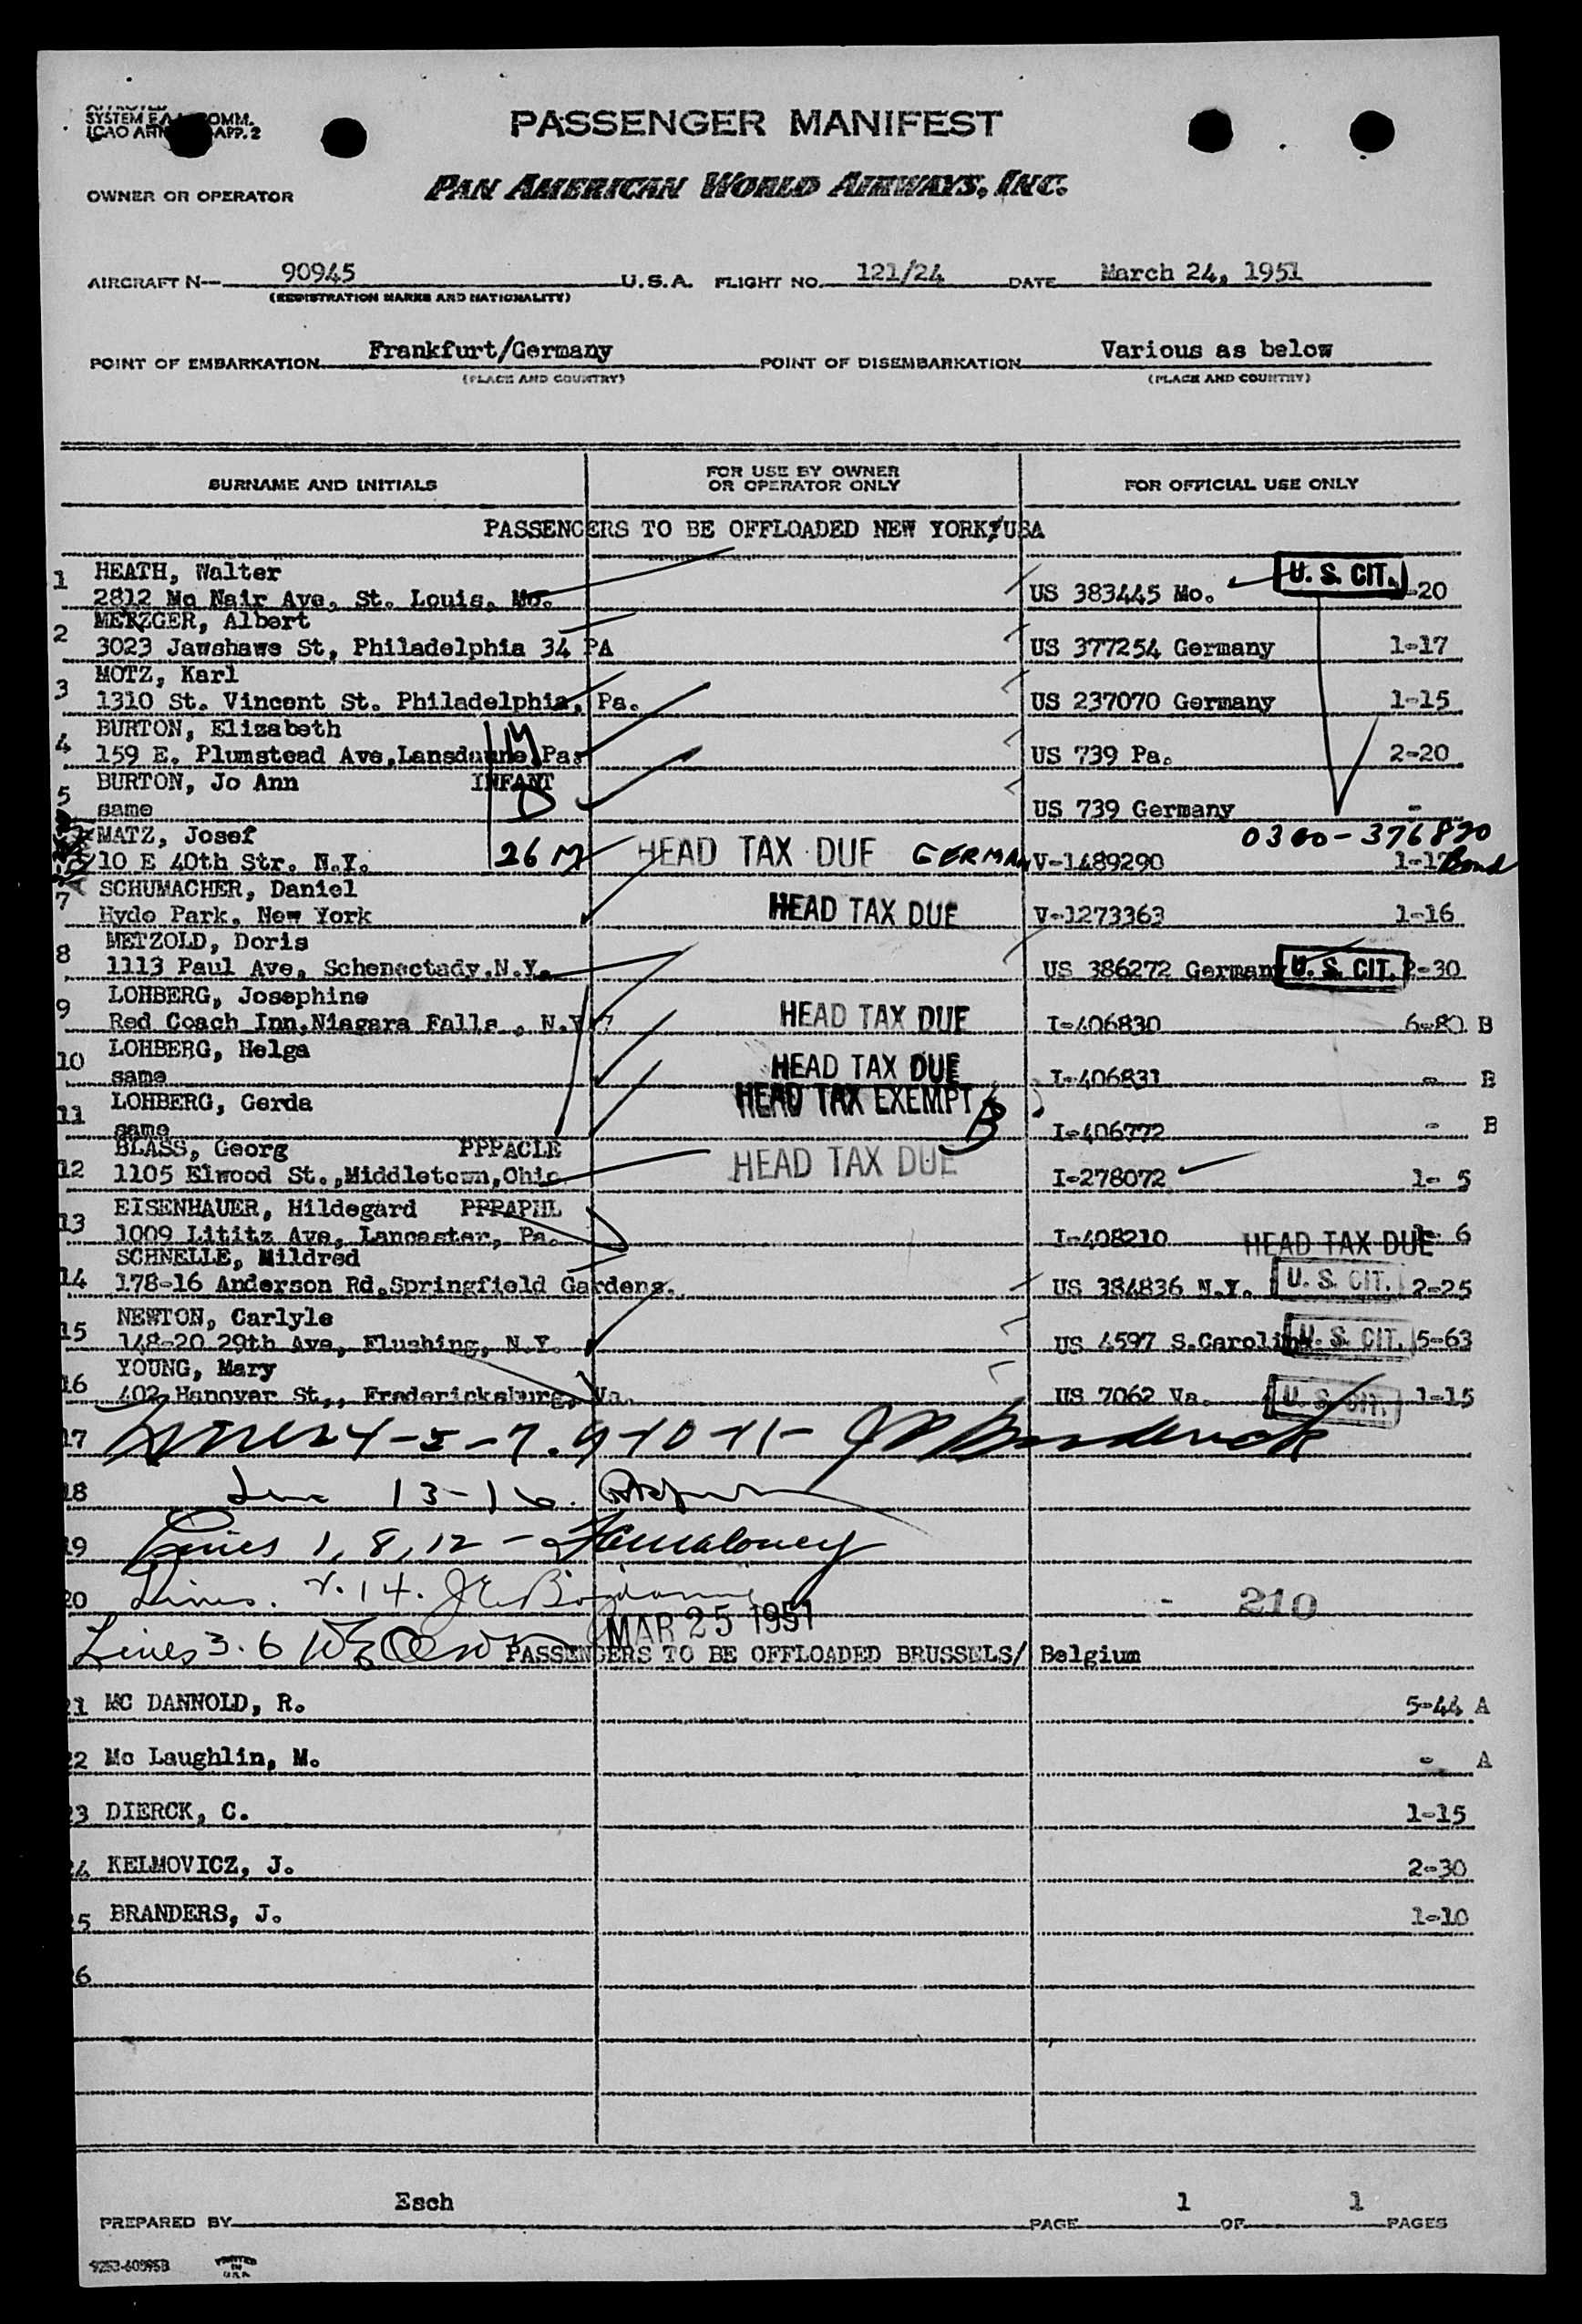 SYSTEM
ICAO APP. 2
PASSENGER MANIFEST
OWNER OR OPERATOR PAN AMERICAN WORLD AIRWAYS, INC.
AIRCRAFT N— 90945 U.S.A. FLIGHT NO. 121/24 DATE March 24, 1951
(REGISTRATION MARKS AND NATIONALITY)
POINT OF EMBARKATION Frankfurt/Germany POINT OF DISEMBARKATION Various as below
(PLACE AND COUNTRY) (PLACE AND COUNTRY)
SURNAME AND INITIALS FOR USE BY OWNER OR OPERATOR ONLY FOR OFFICIAL USE ONLY
PASSENGERS TO BE OFFLOADED NEW YORK/USA
1 HEATH, Walter U. S. CIT.
2812 Mc Nair Ave, St. Louis, Mo. US 383445 Mo. -20
2 METZGER, Albert
3023 Jawshaws St, Philadelphia 34 PA US 377254 Germany 1-17
3 MOTZ, Karl
1310 St. Vincent St. Philadelphia, Pa. US 237070 Germany 1-15
4 BURTON, Elizabeth M
159 E. Plumstead Ave, Lansdowne, Pa. US 739 Pa. 2-20
5 BURTON, Jo Ann INFANT
same D US 739 Germany -
MATZ, Josef 0300-376820
10 E 40th Str. N.Y. 26 M HEAD TAX DUE GERMAN V-1489290 1-17 Bond
7 SCHUMACHER, Daniel
Hyde Park, New York HEAD TAX DUE V-1273363 1-16
8 METZOLD, Doris
1113 Paul Ave, Schenectady, N.Y. US 386272 Germany U. S. CIT. 2-30
9 LOHBERG, Josephine
Red Coach Inn, Niagara Falls, N.Y. HEAD TAX DUE I-406830 6-80 B
10 LOHBERG, Helga
same HEAD TAX DUE I-406831 - B
11 LOHBERG, Gerda HEAD TAX EXEMPT
same B I-406772 - B
12 BLASS, Georg PPPACLE
1105 Elwood St., Middletown, Ohio HEAD TAX DUE I-278072 1- 5
13 EISENHAUER, Hildegard PPPAPHL
1009 Lititz Ave, Lancaster, Pa. I-408210 HEAD TAX DUE 6
14 SCHNELLE, Mildred
178-16 Anderson Rd, Springfield Gardens. US 384836 N.Y. U. S. CIT. 2-25
15 NEWTON, Carlyle
148-20 29th Ave, Flushing, N.Y. US 4597 S.Carolina U. S. CIT. 5-63
16 YOUNG, Mary
402 Hanover St,, Fredericksburg, Va. US 7062 Va. U. S. CIT. 1-15
17 4-5-7-9-10-11-
18 Line 13-16.
19 Lines 1, 8, 12 -
20 Lines. 2. 14. 210
MAR 25 1951
Lines 3. 6
PASSENGERS TO BE OFFLOADED BRUSSELS/ Belgium
21 MC DANNOLD, R. 5-44 A
22 Mc Laughlin, M. - A
23 DIERCK, C. 1-15
24 KELMOVICZ, J. 2-30
25 BRANDERS, J. 1-10
26
PREPARED BY Esch PAGE 1 OF 1 PAGES
PRINTED IN U.S.A.